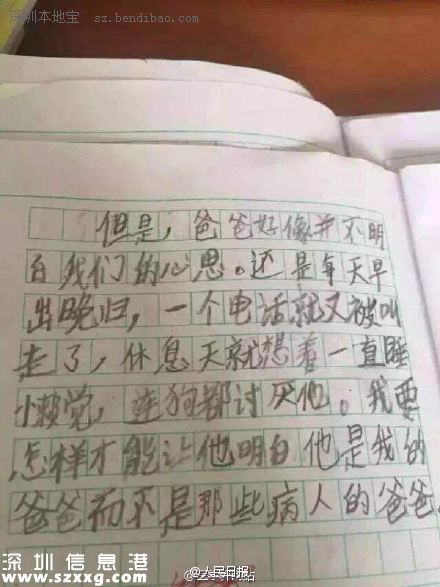 深圳本地宝 sz.bendibao.com
但是，爸爸好像并不明
白我们的心思。还是每天早
出晚归，一个电话就又被叫
走了，休息天就想着一直睡
懒觉，连狗都讨厌他。我要
怎样才能让他明白他是我的
爸爸而不是那些病人的爸爸。
@人民日报
深圳信息港
www.szxxg.com